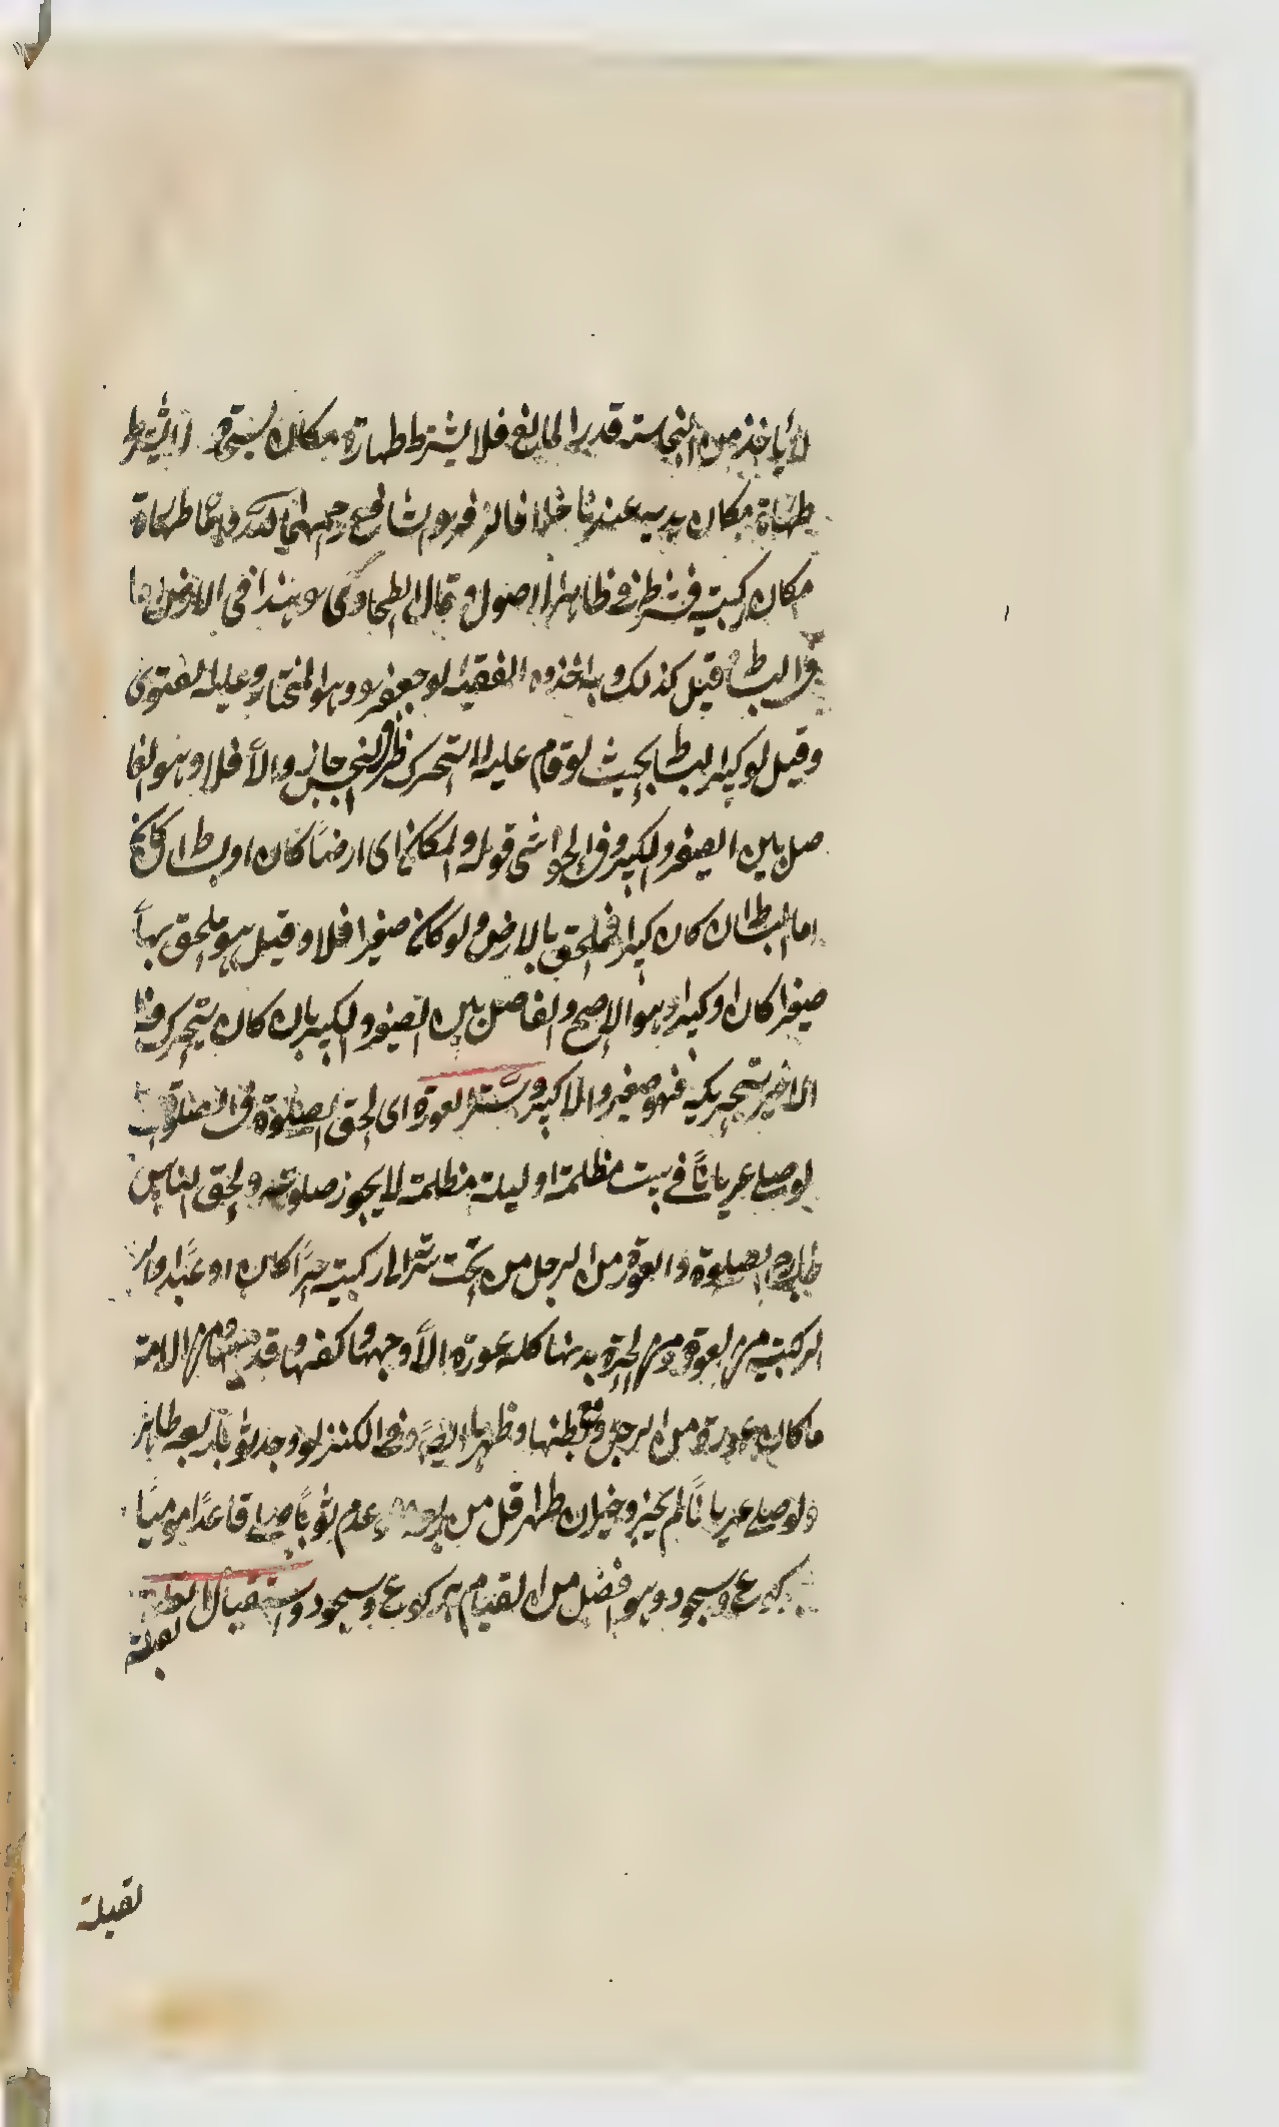 لا يأخذ من النجاسة قدر المانع فلا يشترط طهارة مكان لا يشترط
طهارة مكان يديه عندنا خلافا لزفر والشافعي رحمهما الله واما طهارة
مكان ركبتيه فشرط في ظاهر الاصول وقال الطحاوي وهذا في الارض اما
في البساط قيل كذلك وبه اخذ الفقيه ابو جعفر وهو المختار وعليه الفتوى
وقيل لو كبير البساط بحيث لو قام عليه لا يتحرك طرف النجس جاز والا فلا وهو الفا
صل بين الصغير والكبير وفي الحواشي قوله والمكان اي ارضا كان او بساطا
اما البساط ان كان كبيرا فملحق بالارض ولو كان صغيرا فلا وقيل هو ملحق بها
صغيرا كان او كبيرا وهو الاصح والفاصل بين الصغير والكبير بان كان يتحرك
الاخر بتحريكه فهو صغير والا كبير وستر العورة اي لحق الصلوة في الصلوة
لو صلى عريانا في بيت مظلمة او ليلة مظلمة لا يجوز صلوته ولحق الناس
خارج الصلوة والعورة من الرجل من تحت سرة الى ركبتيه حرا كان او عبدا و
الركبتيه من العورة ومن الحرة بدنها كله عورة الا وجهها وكفيها وقدميها ومن الامة
ما كان عورة من الرجل وبطنها وظهرها ايضا وفي الكنز لو وجد ثوبا ربعه طاهر
ولو صلى عريانا لم يجز وخير ان طهر اقل من ربعه ولو عدم ثوبا صلى قاعدا موميا
بركوع وسجود وهو افضل من القيام بركوع وسجود واستقبال القبلة
لقبلة
لقبلة